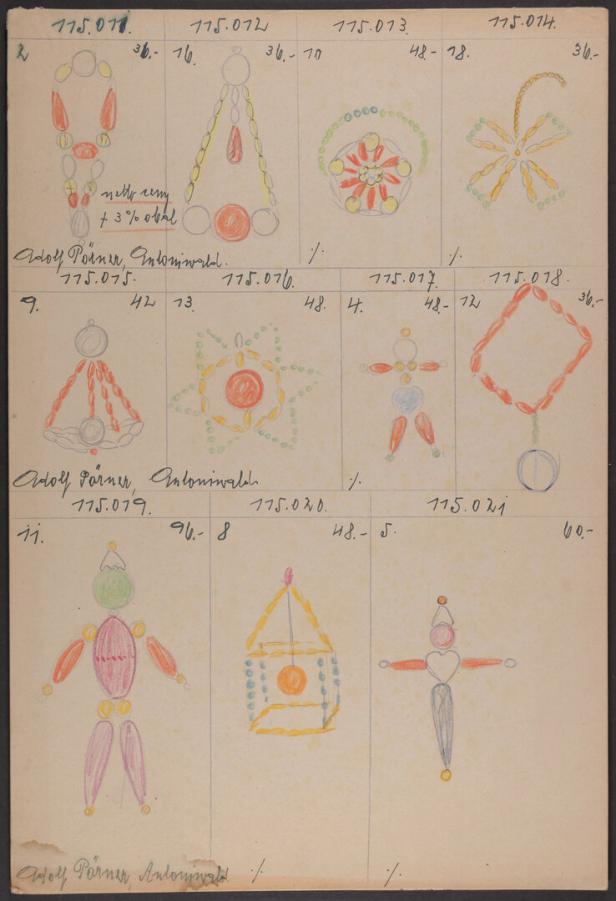 115.011. 115.012 115.013. 115.014.
2 36.- 16. 36.- 10 48.- 18. 36.-
netto ceny
+ 3% obal
Adolf Pörner, Antoniwald. ./. ./.
115.015. 115.016. 115.017. 115.018.
9. 42 13. 48. 4. 48.- 12 36.-
Adolf Pörner, Antoniwald. ./.
115.019. 115.020. 115.021
11. 96.- 8 48.- 5. 60.-
Adolf Pörner, Antoniwald ./. ./.